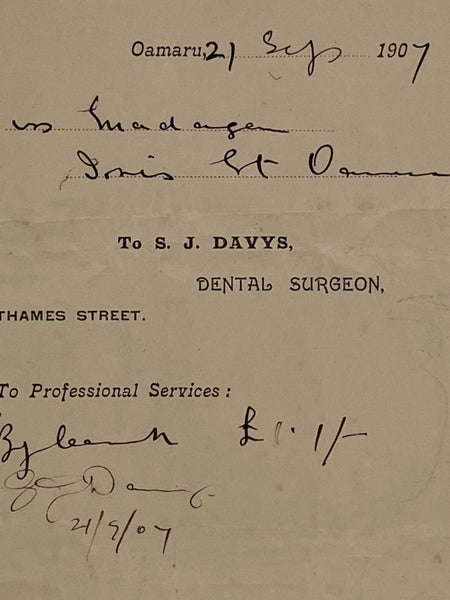 Oamaru, 21 Sep 1907
iss Madagan
St Oamaru
To S. J. DAVYS,
DENTAL SURGEON,
THAMES STREET.
To Professional Services:
By cash £1.1/-
Davys
21/9/07